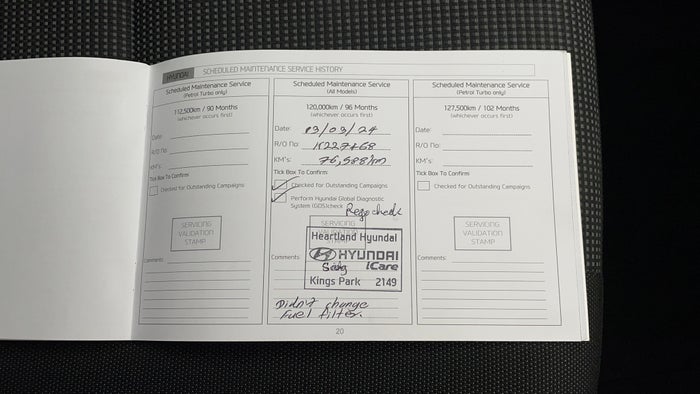 HYUNDAI SCHEDULED MAINTENANCE SERVICE HISTORY
Scheduled Maintenance Service
(Petrol Turbo only)
112,500km / 90 Months
(whichever occurs first)
Date:
R/O No:
KM's:
Tick Box To Confirm:
Checked for Outstanding Campaigns
SERVICING
VALIDATION
STAMP
Comments:
Scheduled Maintenance Service
(All Models)
120,000km / 96 Months
(whichever occurs first)
Date:
R/O No:
KM's: 76,588km
Tick Box To Confirm:
Checked for Outstanding Campaigns
Perform Hyundai Global Diagnostic
System (GDS) check
Rego check
SERVICING
VALIDATION
STAMP
Heartland Hyundai
HYUNDAI
iCare
Kings Park 2149
Comments:
Didn't change
Fuel filter.
Scheduled Maintenance Service
(Petrol Turbo only)
127,500km / 102 Months
(whichever occurs first)
Date:
R/O No:
KM's:
Tick Box To Confirm:
Checked for Outstanding Campaigns
SERVICING
VALIDATION
STAMP
Comments:
20